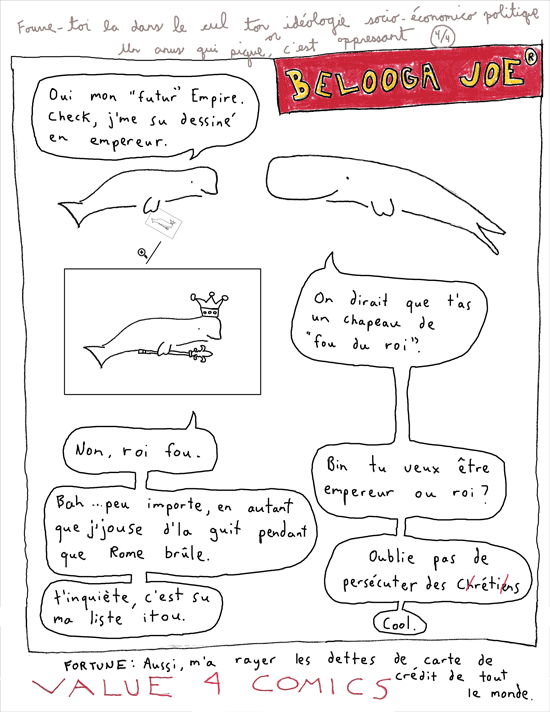 Fourre-toi la dans le cul ton idéologie socio-économico politique
ou
Un anus qui pique, c'est oppressant 4/4
BELOOGA JOE®
Oui mon "futur" Empire.
Check, j'me su dessiné
en empereur.
On dirait que t'as
un chapeau de
"fou du roi".
Non, roi fou.
Bin tu veux être
empereur ou roi?
Bah...peu importe, en autant
que j'jouse d'la guit pendant
que Rome brûle.
Oublie pas de
persécuter des Chrétiens
t'inquiète, c'est su
ma liste itou.
Cool.
FORTUNE: Aussi, m'a rayer les dettes de carte de
crédit de tout
le monde.
VALUE 4 COMICS